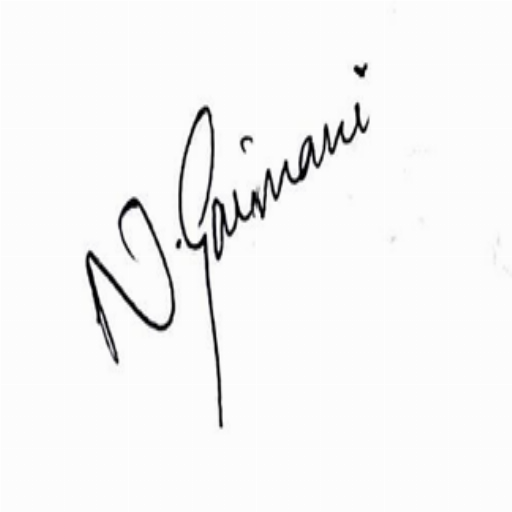 N. Gaimani